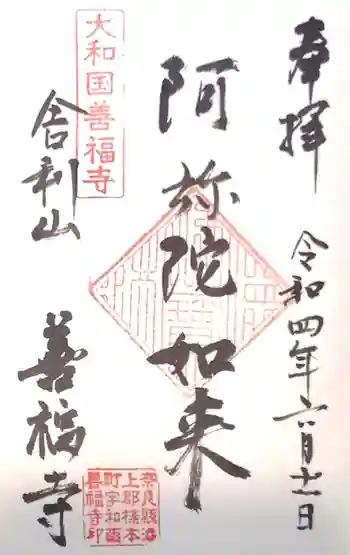 奉拝
令和四年六月十一日
阿弥陀如来
大和国善福寺
舎利山
善福寺
奈良縣添
上郡櫟本
町字和爾
善福寺印